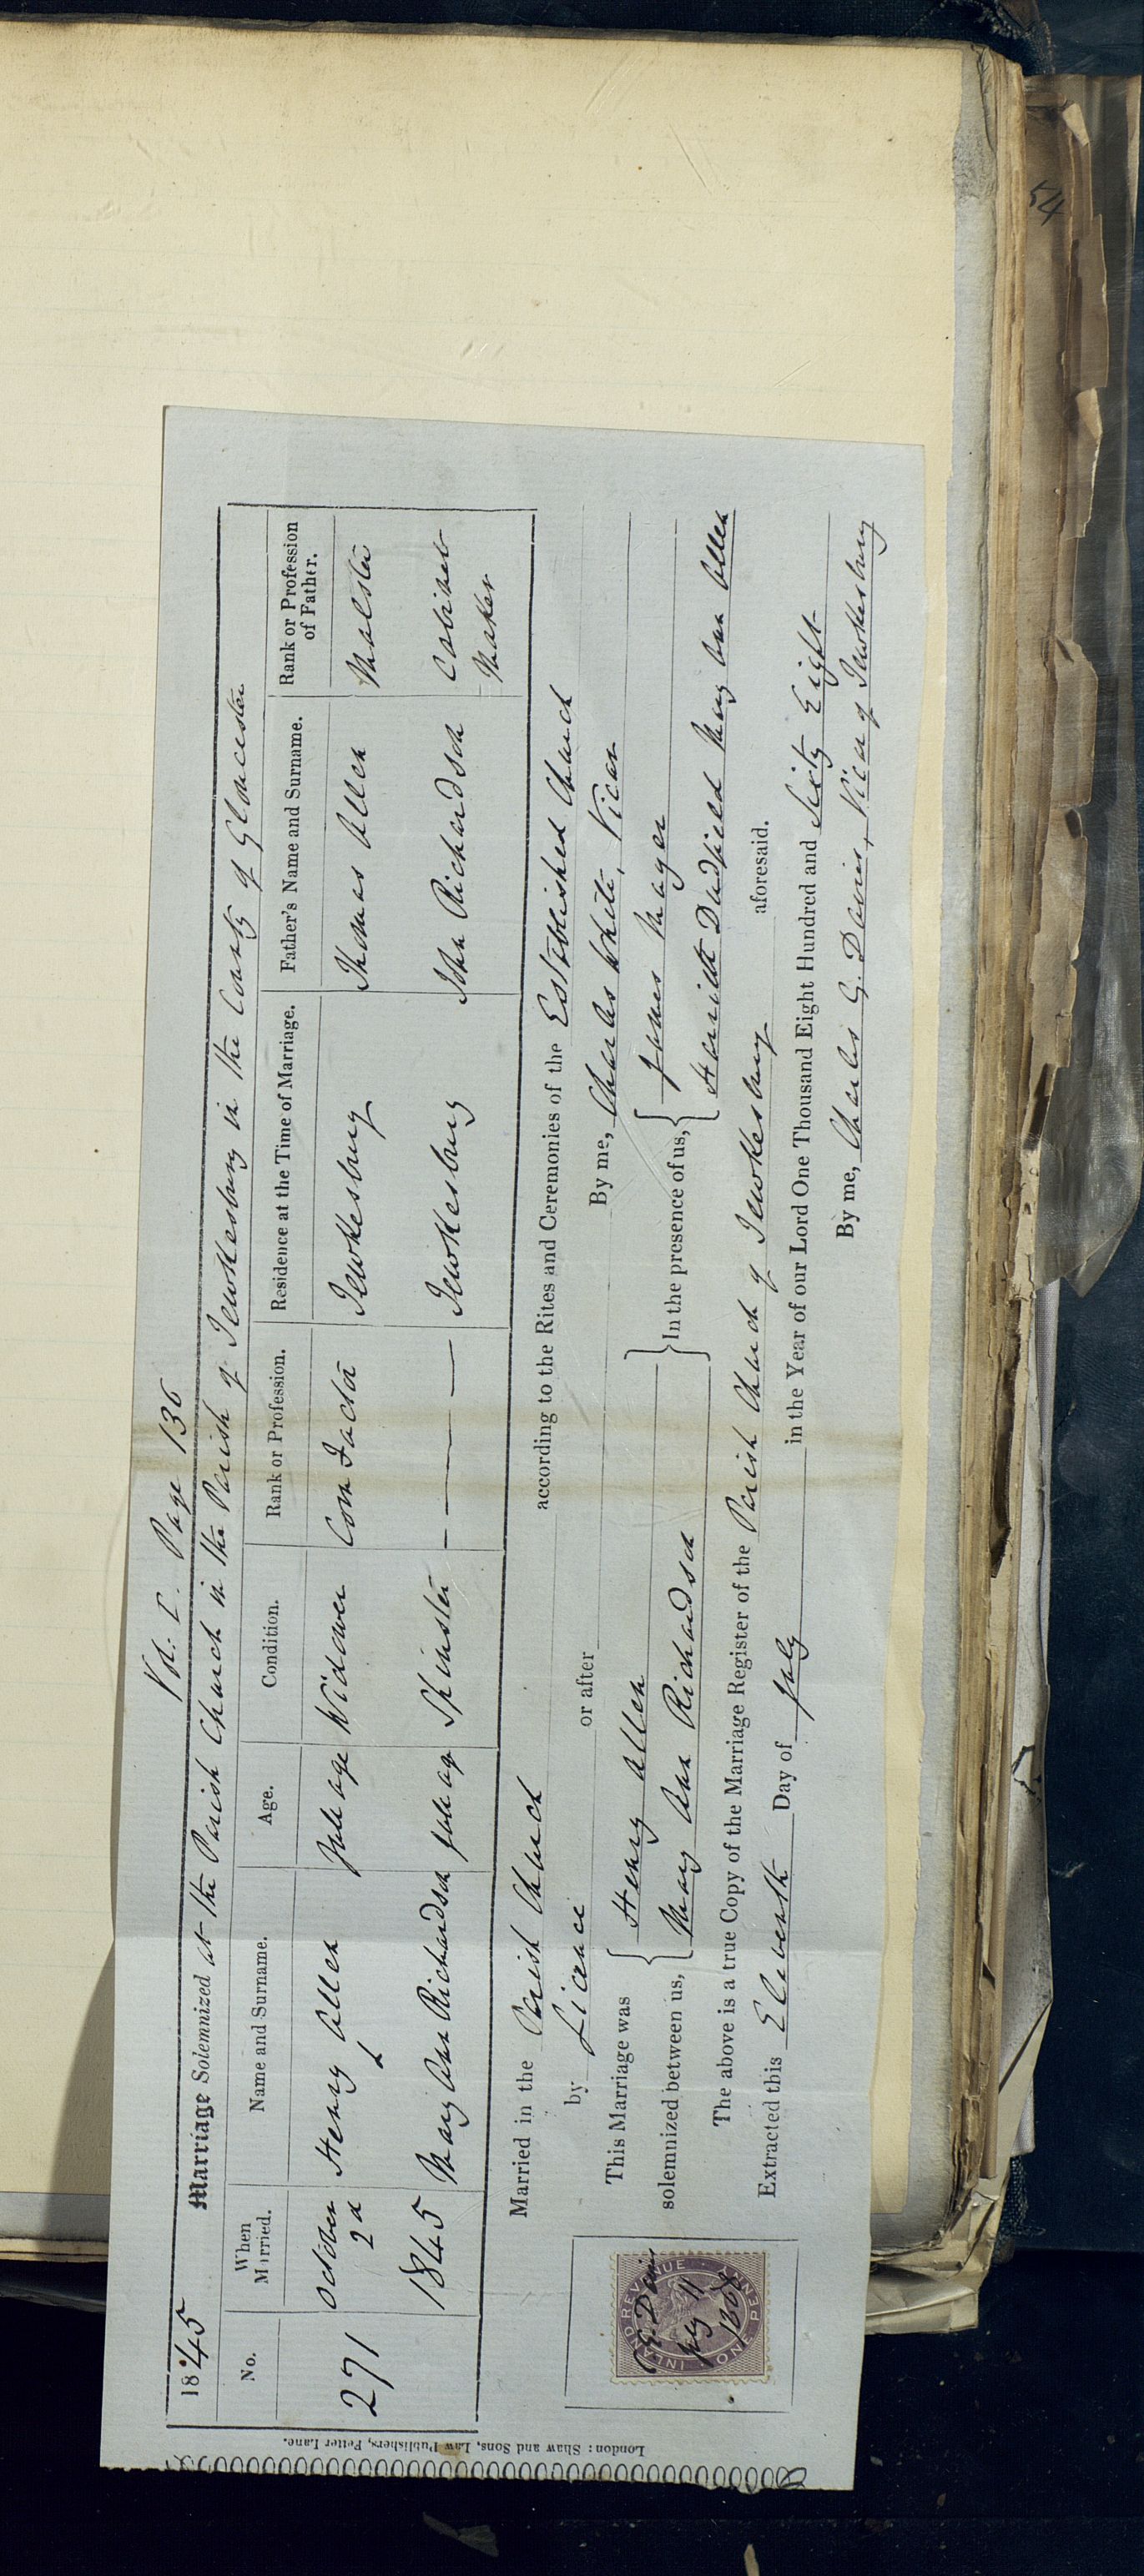 Vol. I. Page 136
1845 Marriage Solemnized at the Parish Church in the Parish of Tewkesbury in the County of Gloucester
No. When Married. Name and Surname. Age. Condition. Rank or Profession. Residence at the Time of Marriage. Father's Name and Surname. Rank or Profession of Father.
271 October 2d Henry Allen full age Widower Corn Factor Tewkesbury Thomas Allen Malster
1845 Mary Ann Richardson full age Spinster Tewkesbury John Richardson Cabinet Maker
Married in the Parish Church according to the Rites and Ceremonies of the Established Church
by Licence or after By me, Charles White, Vicar
This Marriage was solemnized between us, { Henry Allen } In the presence of us, { James Mayer
Mary Ann Richardson Harriett Dudfield Mary Ann Allen
The above is a true Copy of the Marriage Register of the Parish Church of Tewkesbury aforesaid.
Extracted this Eleventh Day of July in the Year of our Lord One Thousand Eight Hundred and Sixty Eight
By me, Charles G. Davies, Vicar of Tewkesbury
INLAND REVENUE
ONE PENNY
July 11
1868
London: Shaw and Sons, Law Publishers, Fetter Lane.
54